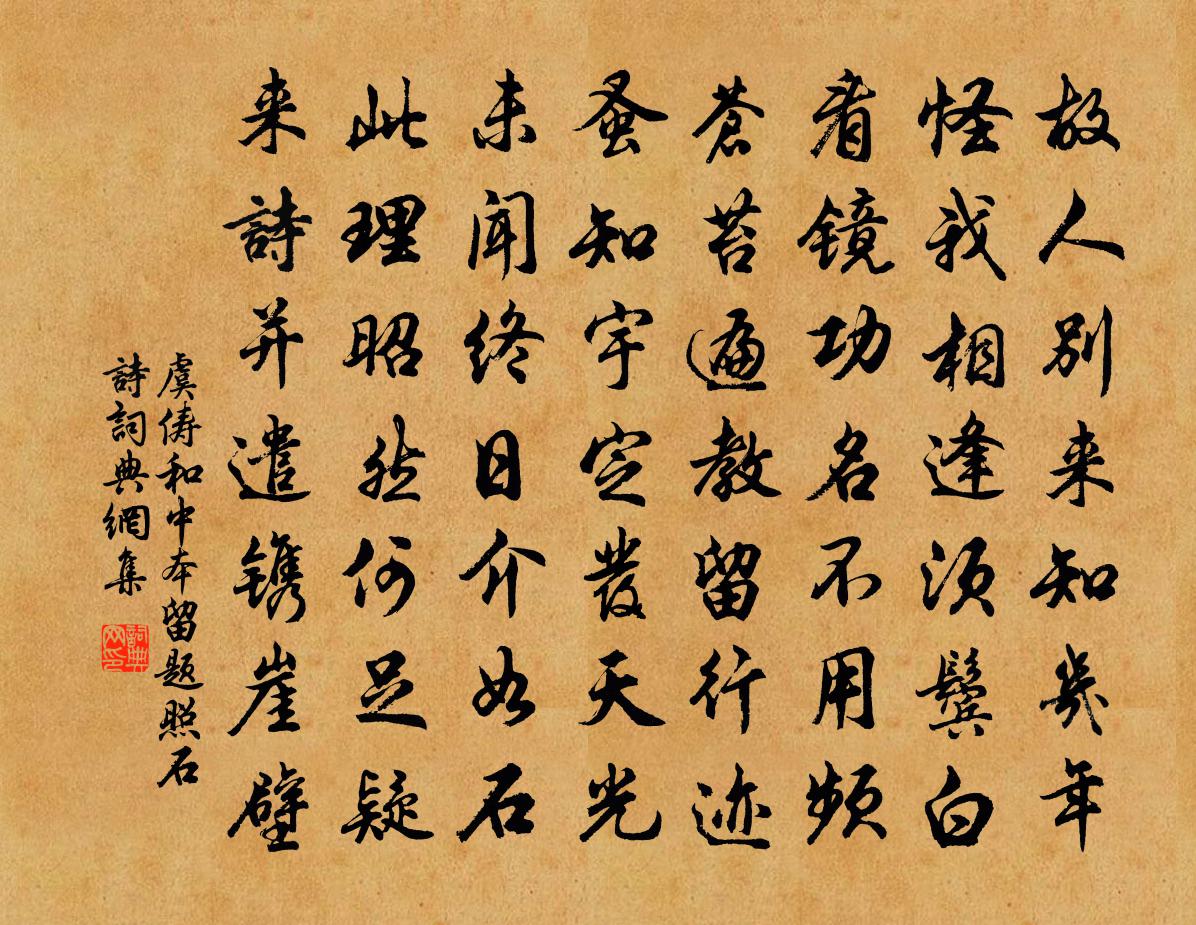 故人别来知几年
怪我相逢须鬓白
看镜功名不用频
苍苔遍教留行迹
蚤知宇定发天光
未闻终日介如石
此理昭然何足疑
来诗并遣镌崖壁
虞俦和中本留题照石
詩詞典網集
詞典网印